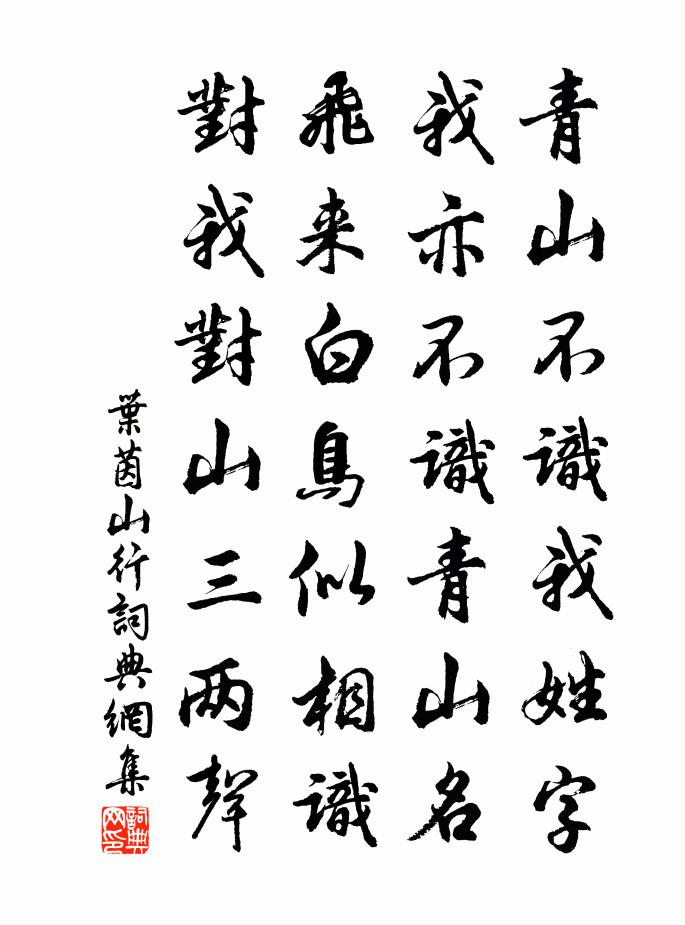 青山不識我姓字
我亦不識青山名
飛来白鳥似相識
對我對山三两聲
葉茵山行詞典網集
詞典网印